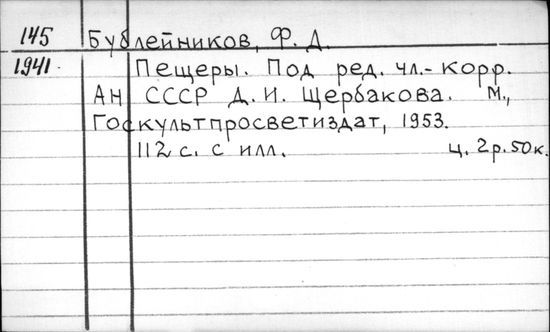 145 Бублейников, Ф. Д.
1941. Пещеры. Под ред. чл.-корр.
АН СССР Д. И. Щербакова. М.,
Госкультпросветиздат, 1953.
112 с. с илл. ц. 2р.50к.